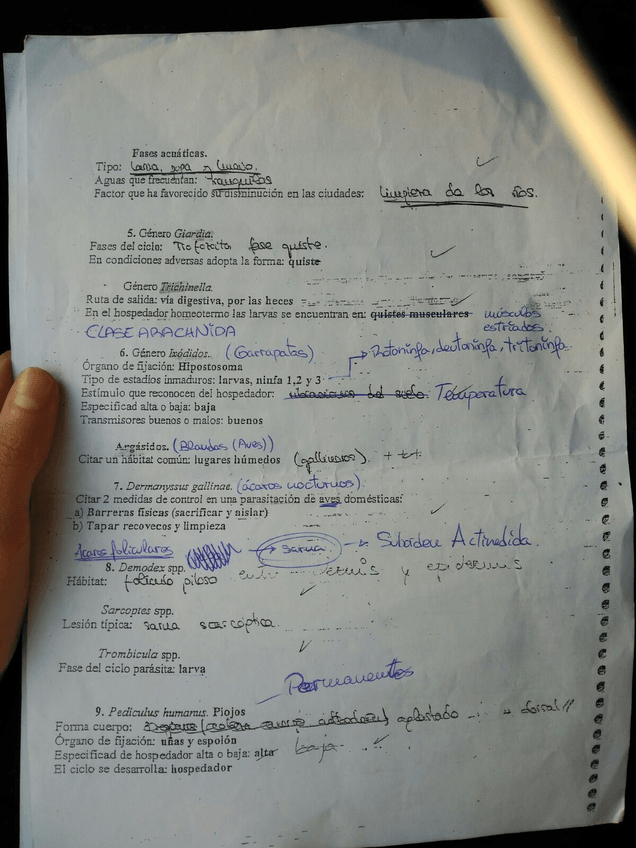 Fases acuáticas.
Tipo: larva, pupa y huevo.
Aguas que frecuentan: tranquilas
Factor que ha favorecido su disminución en las ciudades: limpieza de los ríos.
5. Género Giardia.
Fases del ciclo: Trofozoito fase quiste.
En condiciones adversas adopta la forma: quiste
Género Trichinella.
Ruta de salida: vía digestiva, por las heces
En el hospedador homeotermo las larvas se encuentran en: quistes musculares músculos
estriados.
CLASE ARACHNIDA
6. Género Ixódidos. (Garrapatas)
Protoninfa, deutoninfa, tritoninfa
Órgano de fijación: Hipostosoma
Tipo de estadios inmaduros: larvas, ninfa 1,2 y 3
Estímulo que reconocen del hospedador: vibraciones del suelo. Temperatura
Especificad alta o baja: baja
Transmisores buenos o malos: buenos
Argásidos. (Blandas (Aves))
Citar un hábitat común: lugares húmedos (gallineros).
7. Dermanyssus gallinae. (ácaros nocturnos).
Citar 2 medidas de control en una parasitación de aves domésticas:
a) Barreras físicas (sacrificar y aislar)
b) Tapar recovecos y limpieza
Ácaros foliculares Sarna Suborden Actinedida.
8. Demodex spp.
Hábitat: folículo piloso entre dermis y epidermis
Sarcoptes spp.
Lesión típica: sarna sarcóptica
Trombicula spp.
Fase del ciclo parásita: larva
Permanentes
9. Pediculus humanus. Piojos
Forma cuerpo: aplastado dorsal
Órgano de fijación: uñas y espolón
Especificad de hospedador alta o baja: alta baja
El ciclo se desarrolla: hospedador